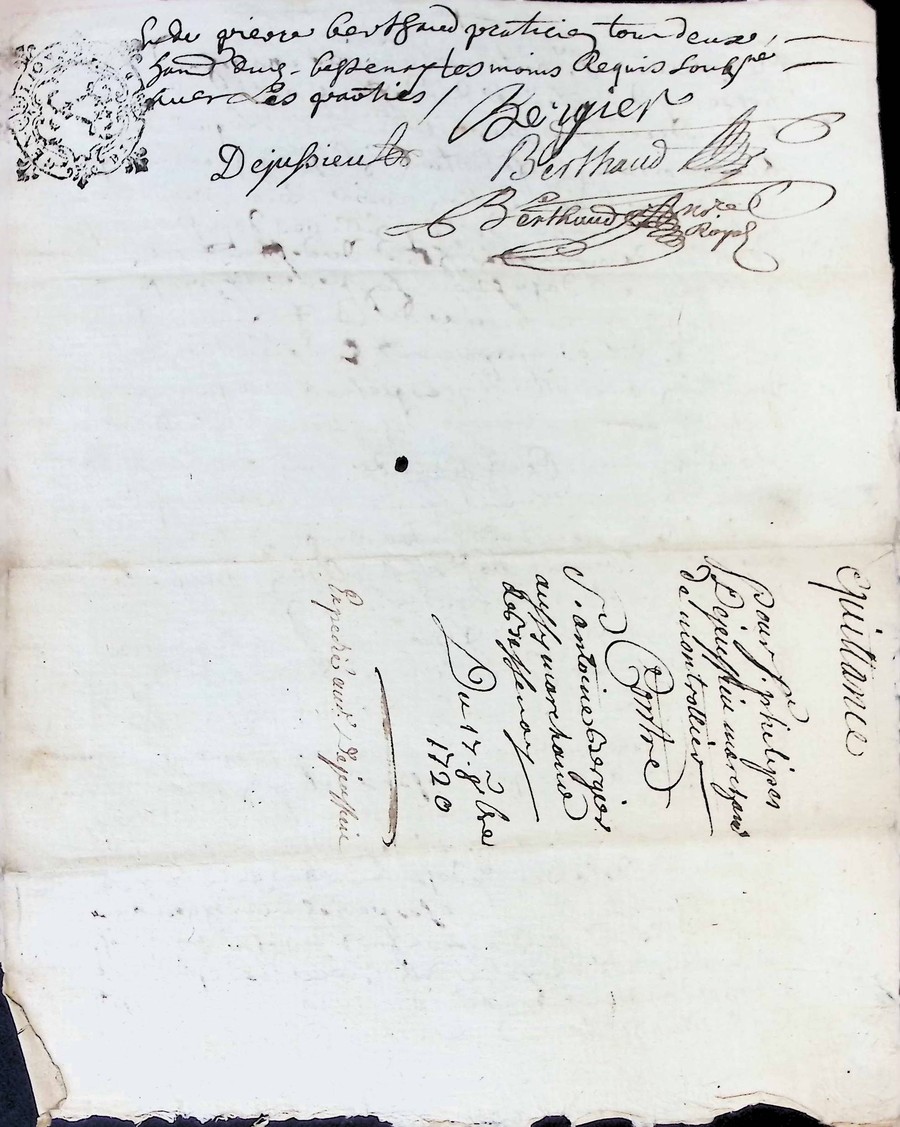 & de pierre berthaud praticien tour deux
hand dud. bessenay tesmoins Requis soubsne
avec Les parties /
Bergier
Dejussieu
Berthaud
Berthaud
No.re Royal
Quittance
Pour Sr. philipes
Dejussieu marchand
de montrottier
Contre
Sr. antoine Bergier
aussy marchand
de Bessenay
Du 17. 9bre
1720
Expedié aud. Dejussieu